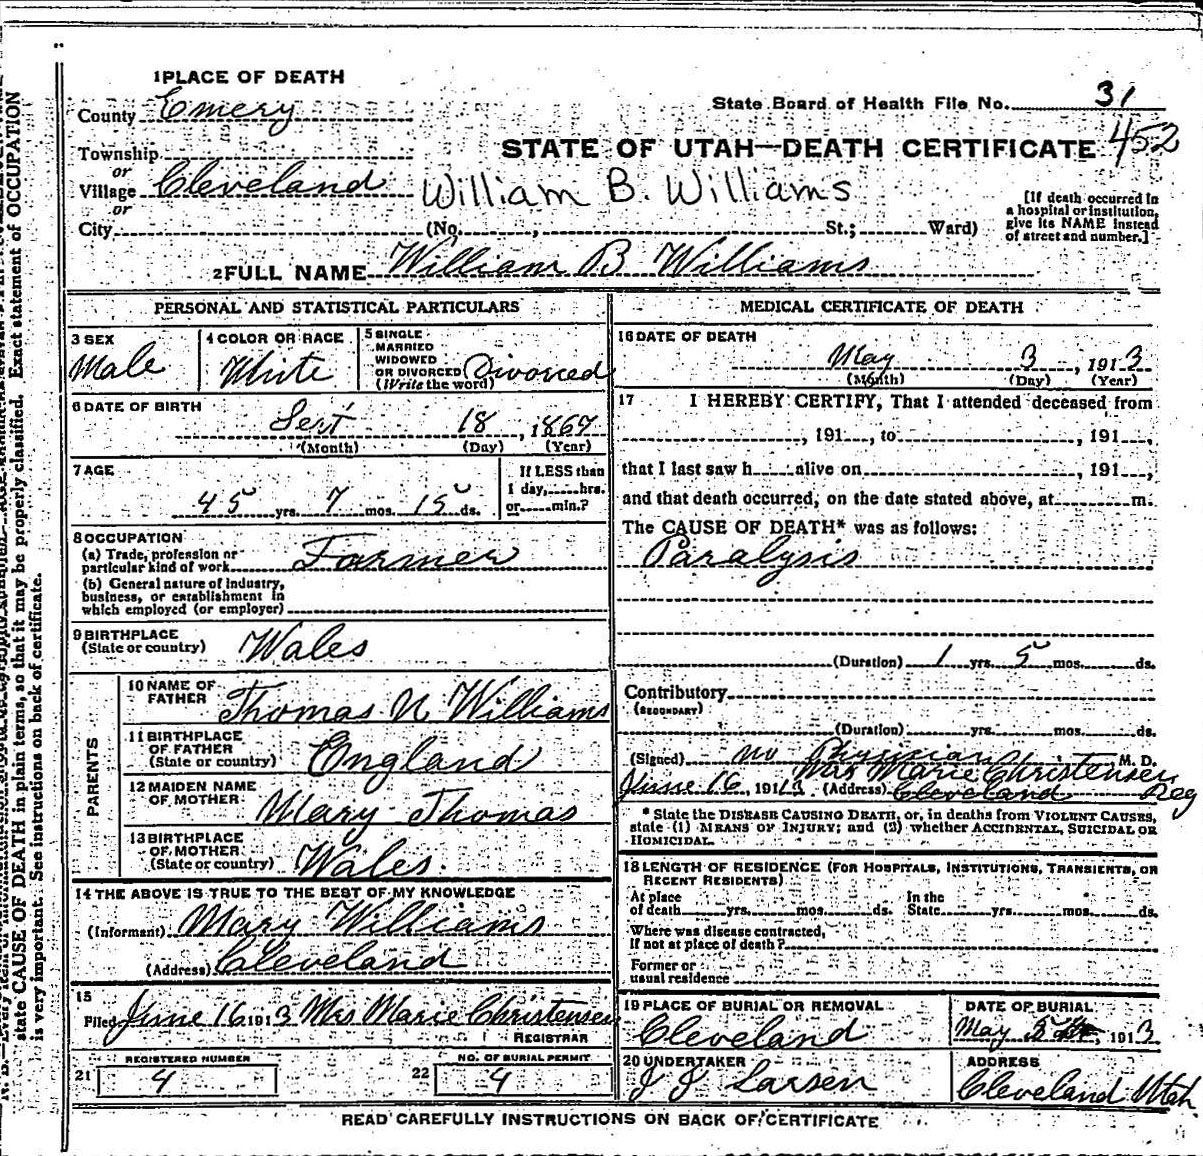 1 PLACE OF DEATH
County Emery
State Board of Health File No. 31
452
Township
STATE OF UTAH—DEATH CERTIFICATE
or
Village Cleveland
William B. Williams
or
City (No. , St.; Ward)
[If death occurred in
a hospital or institution,
give its NAME instead
of street and number.]
2 FULL NAME William B Williams
PERSONAL AND STATISTICAL PARTICULARS
3 SEX
Male
4 COLOR OR RACE
White
5 SINGLE
MARRIED
WIDOWED
OR DIVORCED
(Write the word)
Divorced
6 DATE OF BIRTH
Sept 18, 1867
(Month) (Day) (Year)
7 AGE
45 yrs. 7 mos. 15 ds.
If LESS than
1 day, hrs.
or min.?
8 OCCUPATION
(a) Trade, profession or
particular kind of work Farmer
(b) General nature of Industry,
business, or establishment in
which employed (or employer)
9 BIRTHPLACE
(State or country) Wales
PARENTS
10 NAME OF
FATHER Thomas N Williams
11 BIRTHPLACE
OF FATHER
(State or country) England
12 MAIDEN NAME
OF MOTHER Mary Thomas
13 BIRTHPLACE
OF MOTHER
(State or country) Wales.
14 THE ABOVE IS TRUE TO THE BEST OF MY KNOWLEDGE
(Informant) Mary Williams
(Address) Cleveland
15
Filed June 16 1913 Mrs Marie Christensen
REGISTRAR
REGISTERED NUMBER
21 4
NO. OF BURIAL PERMIT
22 4
MEDICAL CERTIFICATE OF DEATH
16 DATE OF DEATH
May 3, 1913
(Month) (Day) (Year)
17 I HEREBY CERTIFY, That I attended deceased from
, 191 , to , 191 ,
that I last saw h alive on , 191 ,
and that death occurred, on the date stated above, at m.
The CAUSE OF DEATH* was as follows:
Paralysis
(Duration) 1 yrs. 5 mos. ds.
Contributory
(SECONDARY)
(Duration) yrs. mos. ds.
(Signed) no Physician M. D.
Marie Christensen
June 16, 1913 (Address) Cleveland Reg
* State the DISEASE CAUSING DEATH, or, in deaths from VIOLENT CAUSES,
state (1) MEANS OF INJURY; and (2) whether ACCIDENTAL, SUICIDAL OR
HOMICIDAL.
18 LENGTH OF RESIDENCE (FOR HOSPITALS, INSTITUTIONS, TRANSIENTS, OR
RECENT RESIDENTS)
At place
of death yrs. mos. ds.
In the
State yrs. mos. ds.
Where was disease contracted,
If not at place of death?
Former or
usual residence
19 PLACE OF BURIAL OR REMOVAL
Cleveland
DATE OF BURIAL
May 5, 1913
20 UNDERTAKER
J J Larsen
ADDRESS
Cleveland Utah
READ CAREFULLY INSTRUCTIONS ON BACK OF CERTIFICATE
state CAUSE OF DEATH in plain terms, so that it may be properly classified. Exact statement of OCCUPATION
is very important. See instructions on back of certificate.